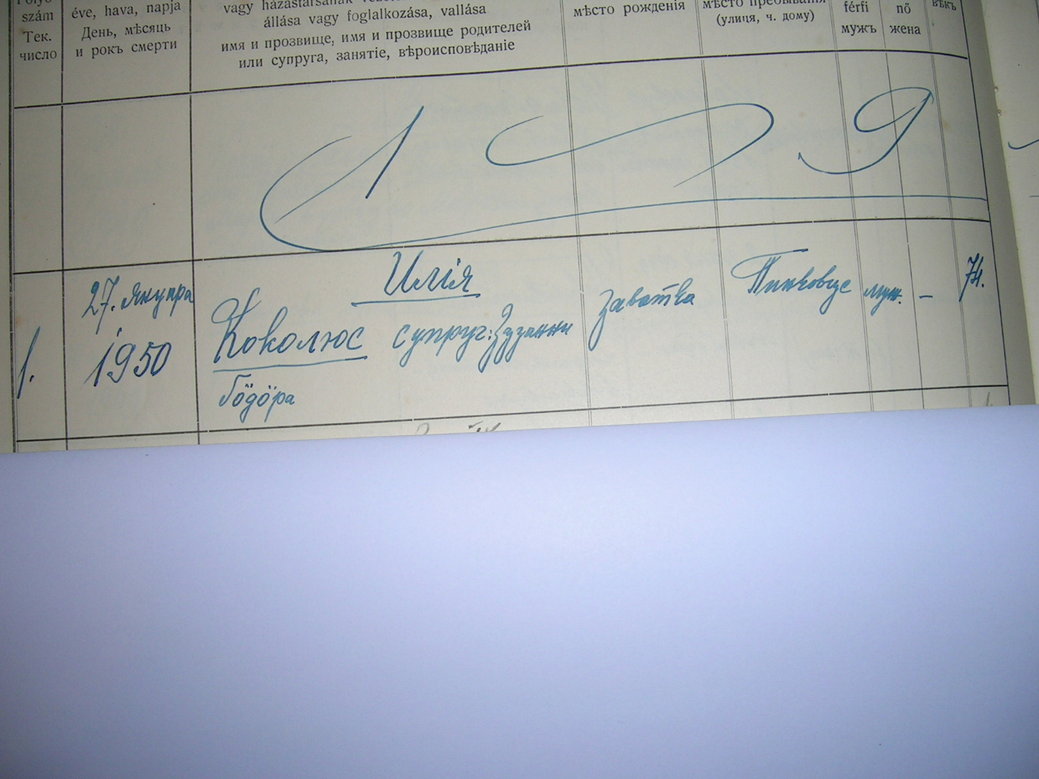 szám
Тек.
число
éve, hava, napja
День, мѣсяць
и рокъ смерти
vagy házastársának
állása vagy foglalkozása, vallása
имя и прозвище, имя и прозвище родителей
или супруга, занятіе, вѣроисповѣданіе
мѣсто рожденія
мѣсто пребыванія
(улиця, ч. дому)
férfi
мужъ
nő
жена
вѣкъ
1 9
1.
27. януара
1950
Илія
Коколюс супруг: Зузанни
Бӧдӧра
Заватка
Пинковце
муж.
–
74.